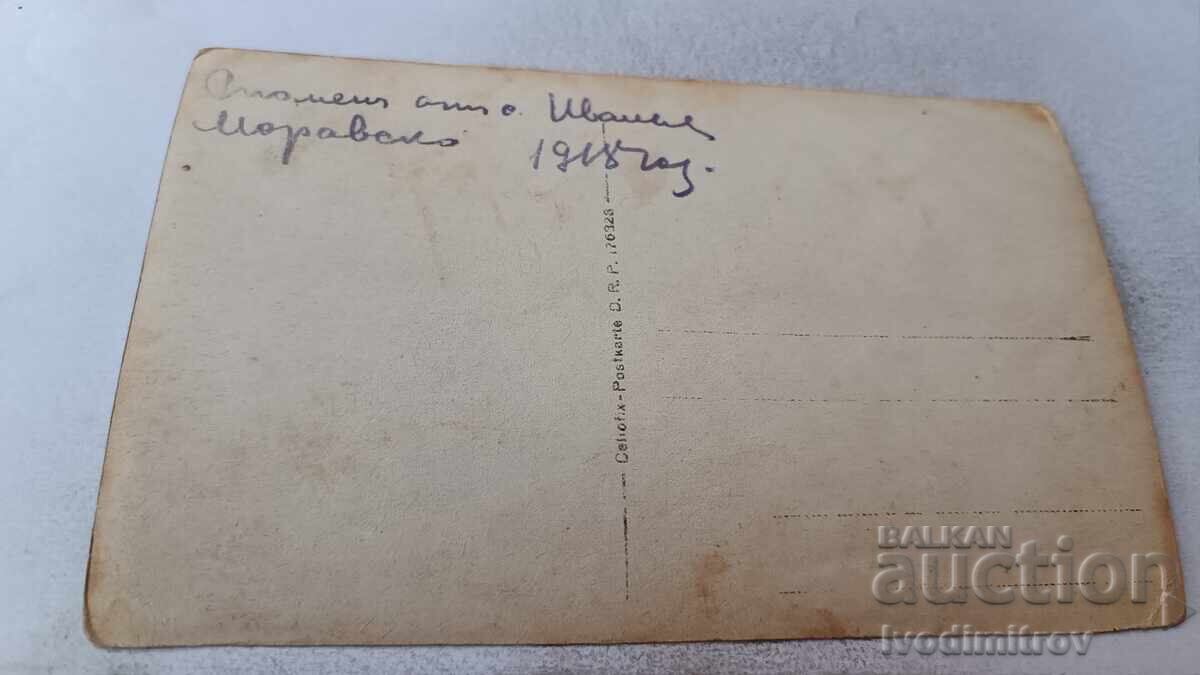 Споменъ отъ о. Иваньа
Моравско 1918 год.
Cellofix-Postkarte D. R. P. 176323
BALKAN
auction
Ivodimitrov